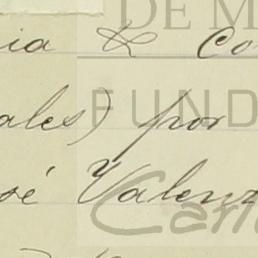 DE M
ia & Co
ales) por
FUND
sé Valenz
Carl